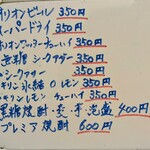 オリオンビール 350円
スーパードライ 350円
オリオンサワーチューハイ 350円
無糖 シークヮサー 350円
シークヮサー 350円
キリン氷結 レモン 350円
キリンレモン チューハイ 350円
黒糖焼酎・麦・芋・泡盛 400円
プレミア焼酎 600円